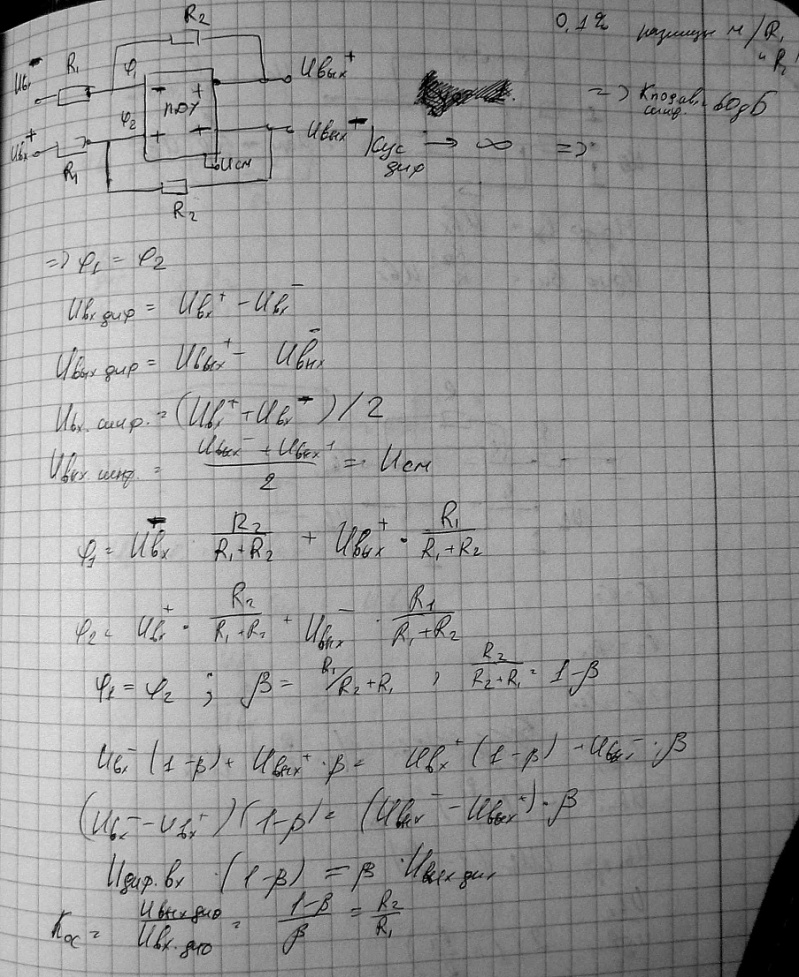 R₂
0,1% разницы м/R₁
и R₂
Uвх⁻ R₁ φ₁ - + Uвых⁺
ПОУ
=> Kподав. синф. 60дБ
Uвх⁺ R₁ φ₂ + - Uвых⁻
Uсм
Kус диф → ∞ =>
R₂
=> φ₁ = φ₂
Uвх диф = Uвх⁺ - Uвх⁻
Uвых диф = Uвых⁺ - Uвых⁻
Uвх. синф. = (Uвх⁺ + Uвх⁻) / 2
Uвых синф. = (Uвых⁻ + Uвых⁺) / 2 = Uсм
φ₁ = Uвх⁻ · R₂/(R₁+R₂) + Uвых⁺ · R₁/(R₁+R₂)
φ₂ = Uвх⁺ · R₂/(R₁+R₂) + Uвых⁻ · R₁/(R₁+R₂)
φ₁ = φ₂ ; β = R₁/R₂+R₁ , R₂/(R₂+R₁) = 1-β
Uвх⁻ (1-β) + Uвых⁺ · β = Uвх⁺ (1-β) + Uвых⁻ · β
(Uвх⁻ - Uвх⁺)(1-β) = (Uвых⁻ - Uвых⁺) · β
Uдиф. вх · (1-β) = β · Uвых диф
Kос = Uвых диф / Uвх. диф = (1-β)/β = R₂/R₁